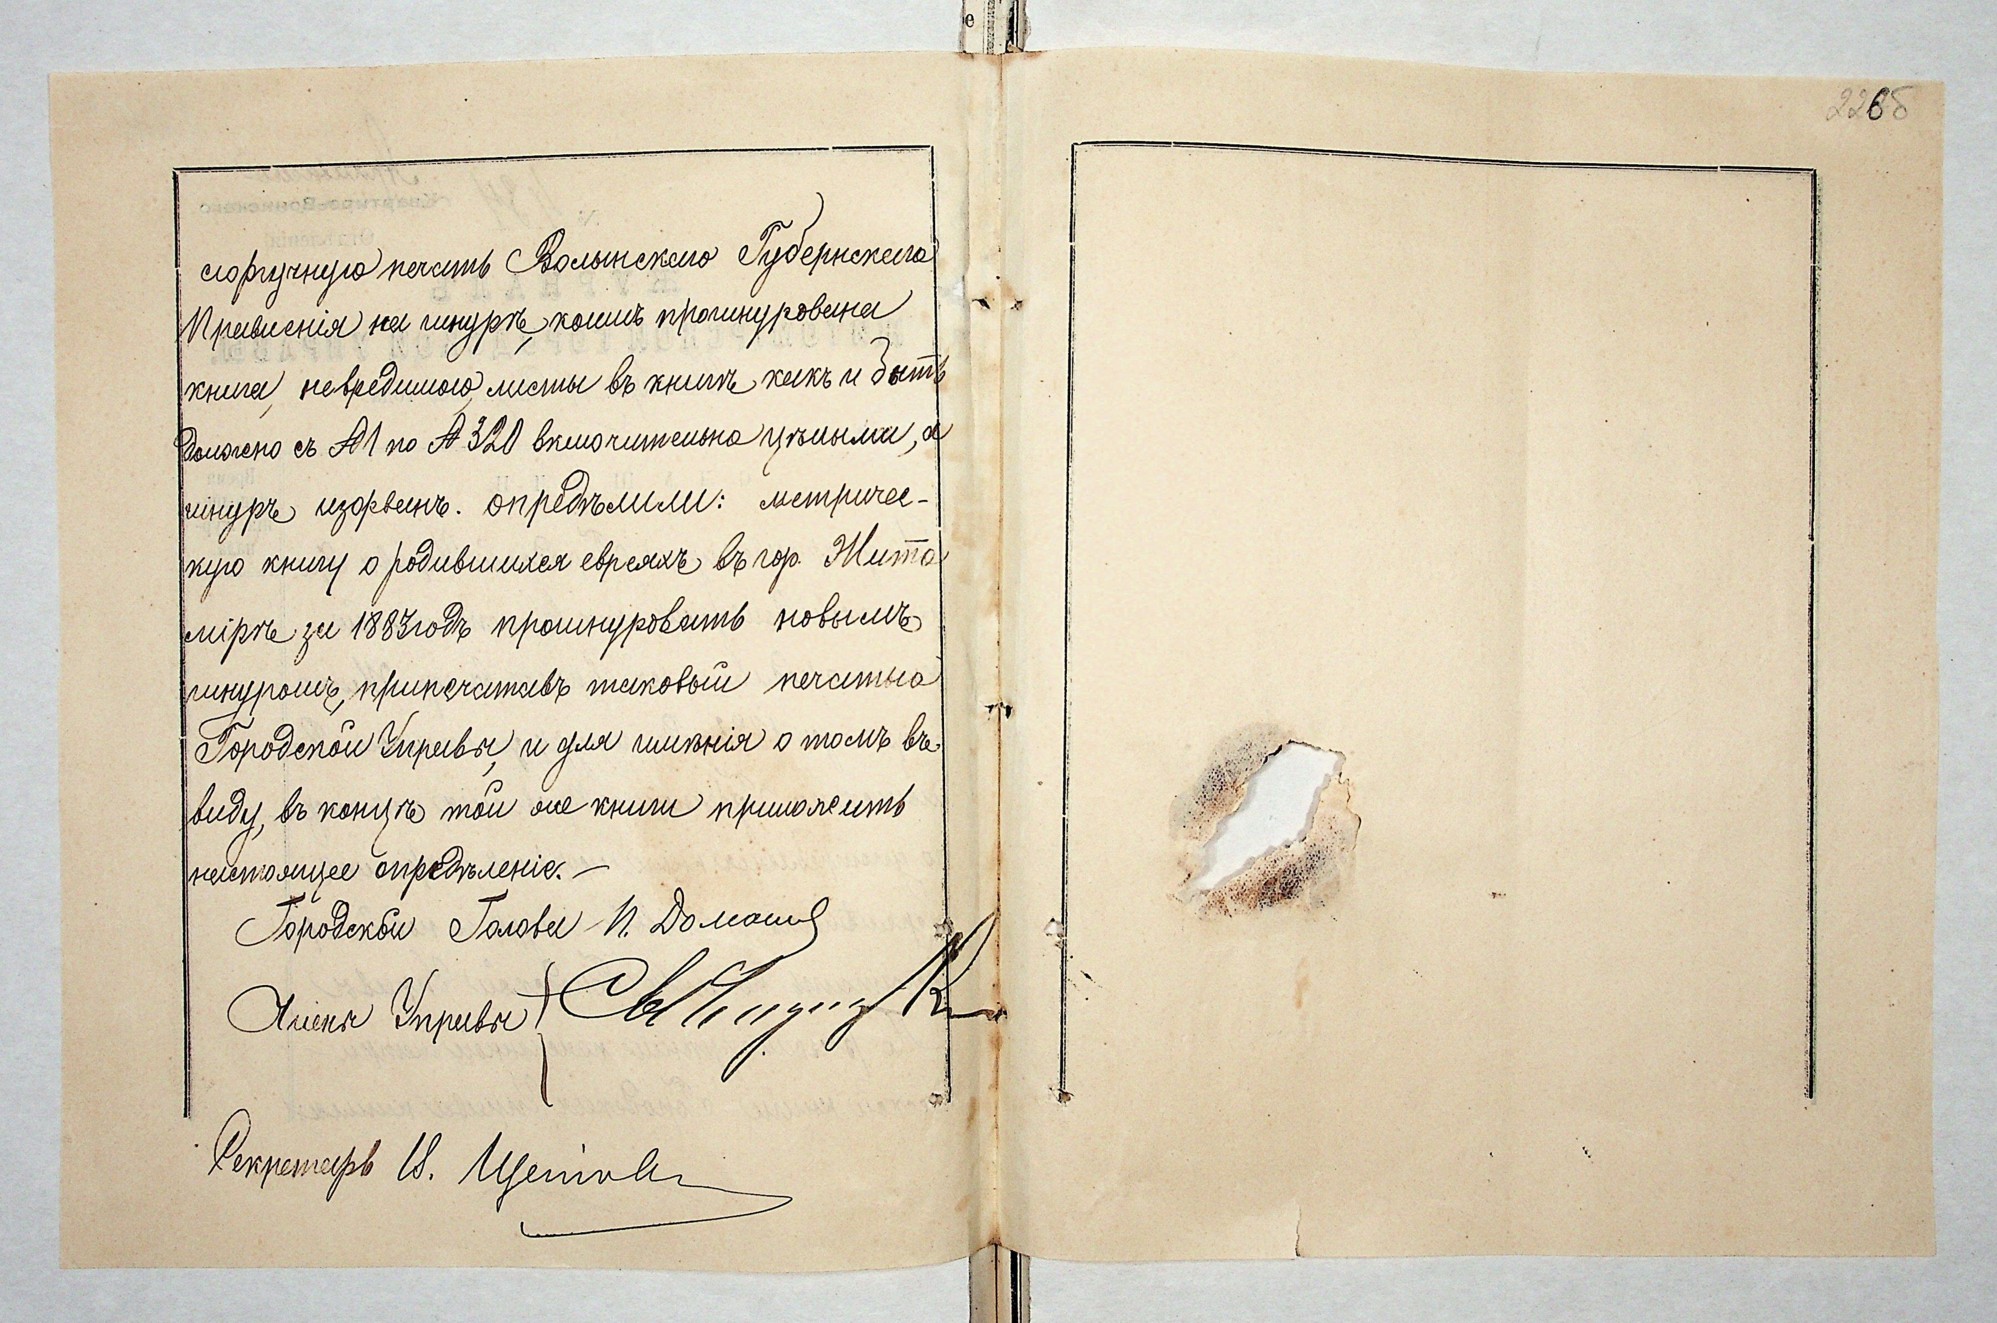 сюргучную печать Волынскаго Губернскаго
Правленія на шнурѣ, коимъ прошнурована
книга, невредимою, листы въ книгѣ какъ и быть
должно съ №1 по №320 включительно цѣлыми, а
шнуръ изорванъ. опредѣлили: метричес-
кую книгу о родившихся евреяхъ въ гор. Жито
мірѣ за 1883 годъ прошнуровать новымъ
шнуромъ, припечатавъ таковый печатью
Городской Управы, и для имѣнія о томъ въ
виду, въ концѣ той же книги приложить
настоящее опредѣленіе. —
Городской Голова И.
Члены Управы
Секретарь
226б